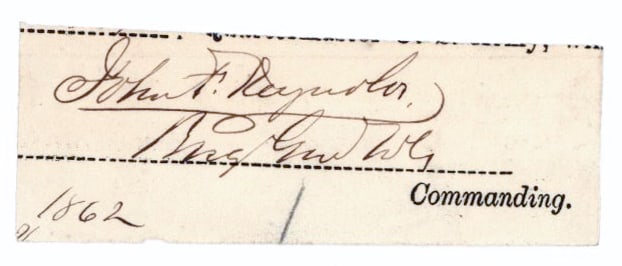 John F. Reynolds.
Brig Genl Vols
Commanding.
1862